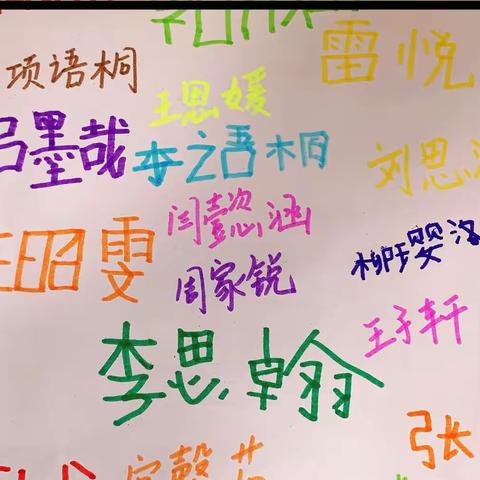 雷悦
项语桐
王恩媛
吕墨哉
李之语桐
刘思
闫懿涵
昭雯
周家锐
柳璎洛
王子轩
李思翰
张
馨艺